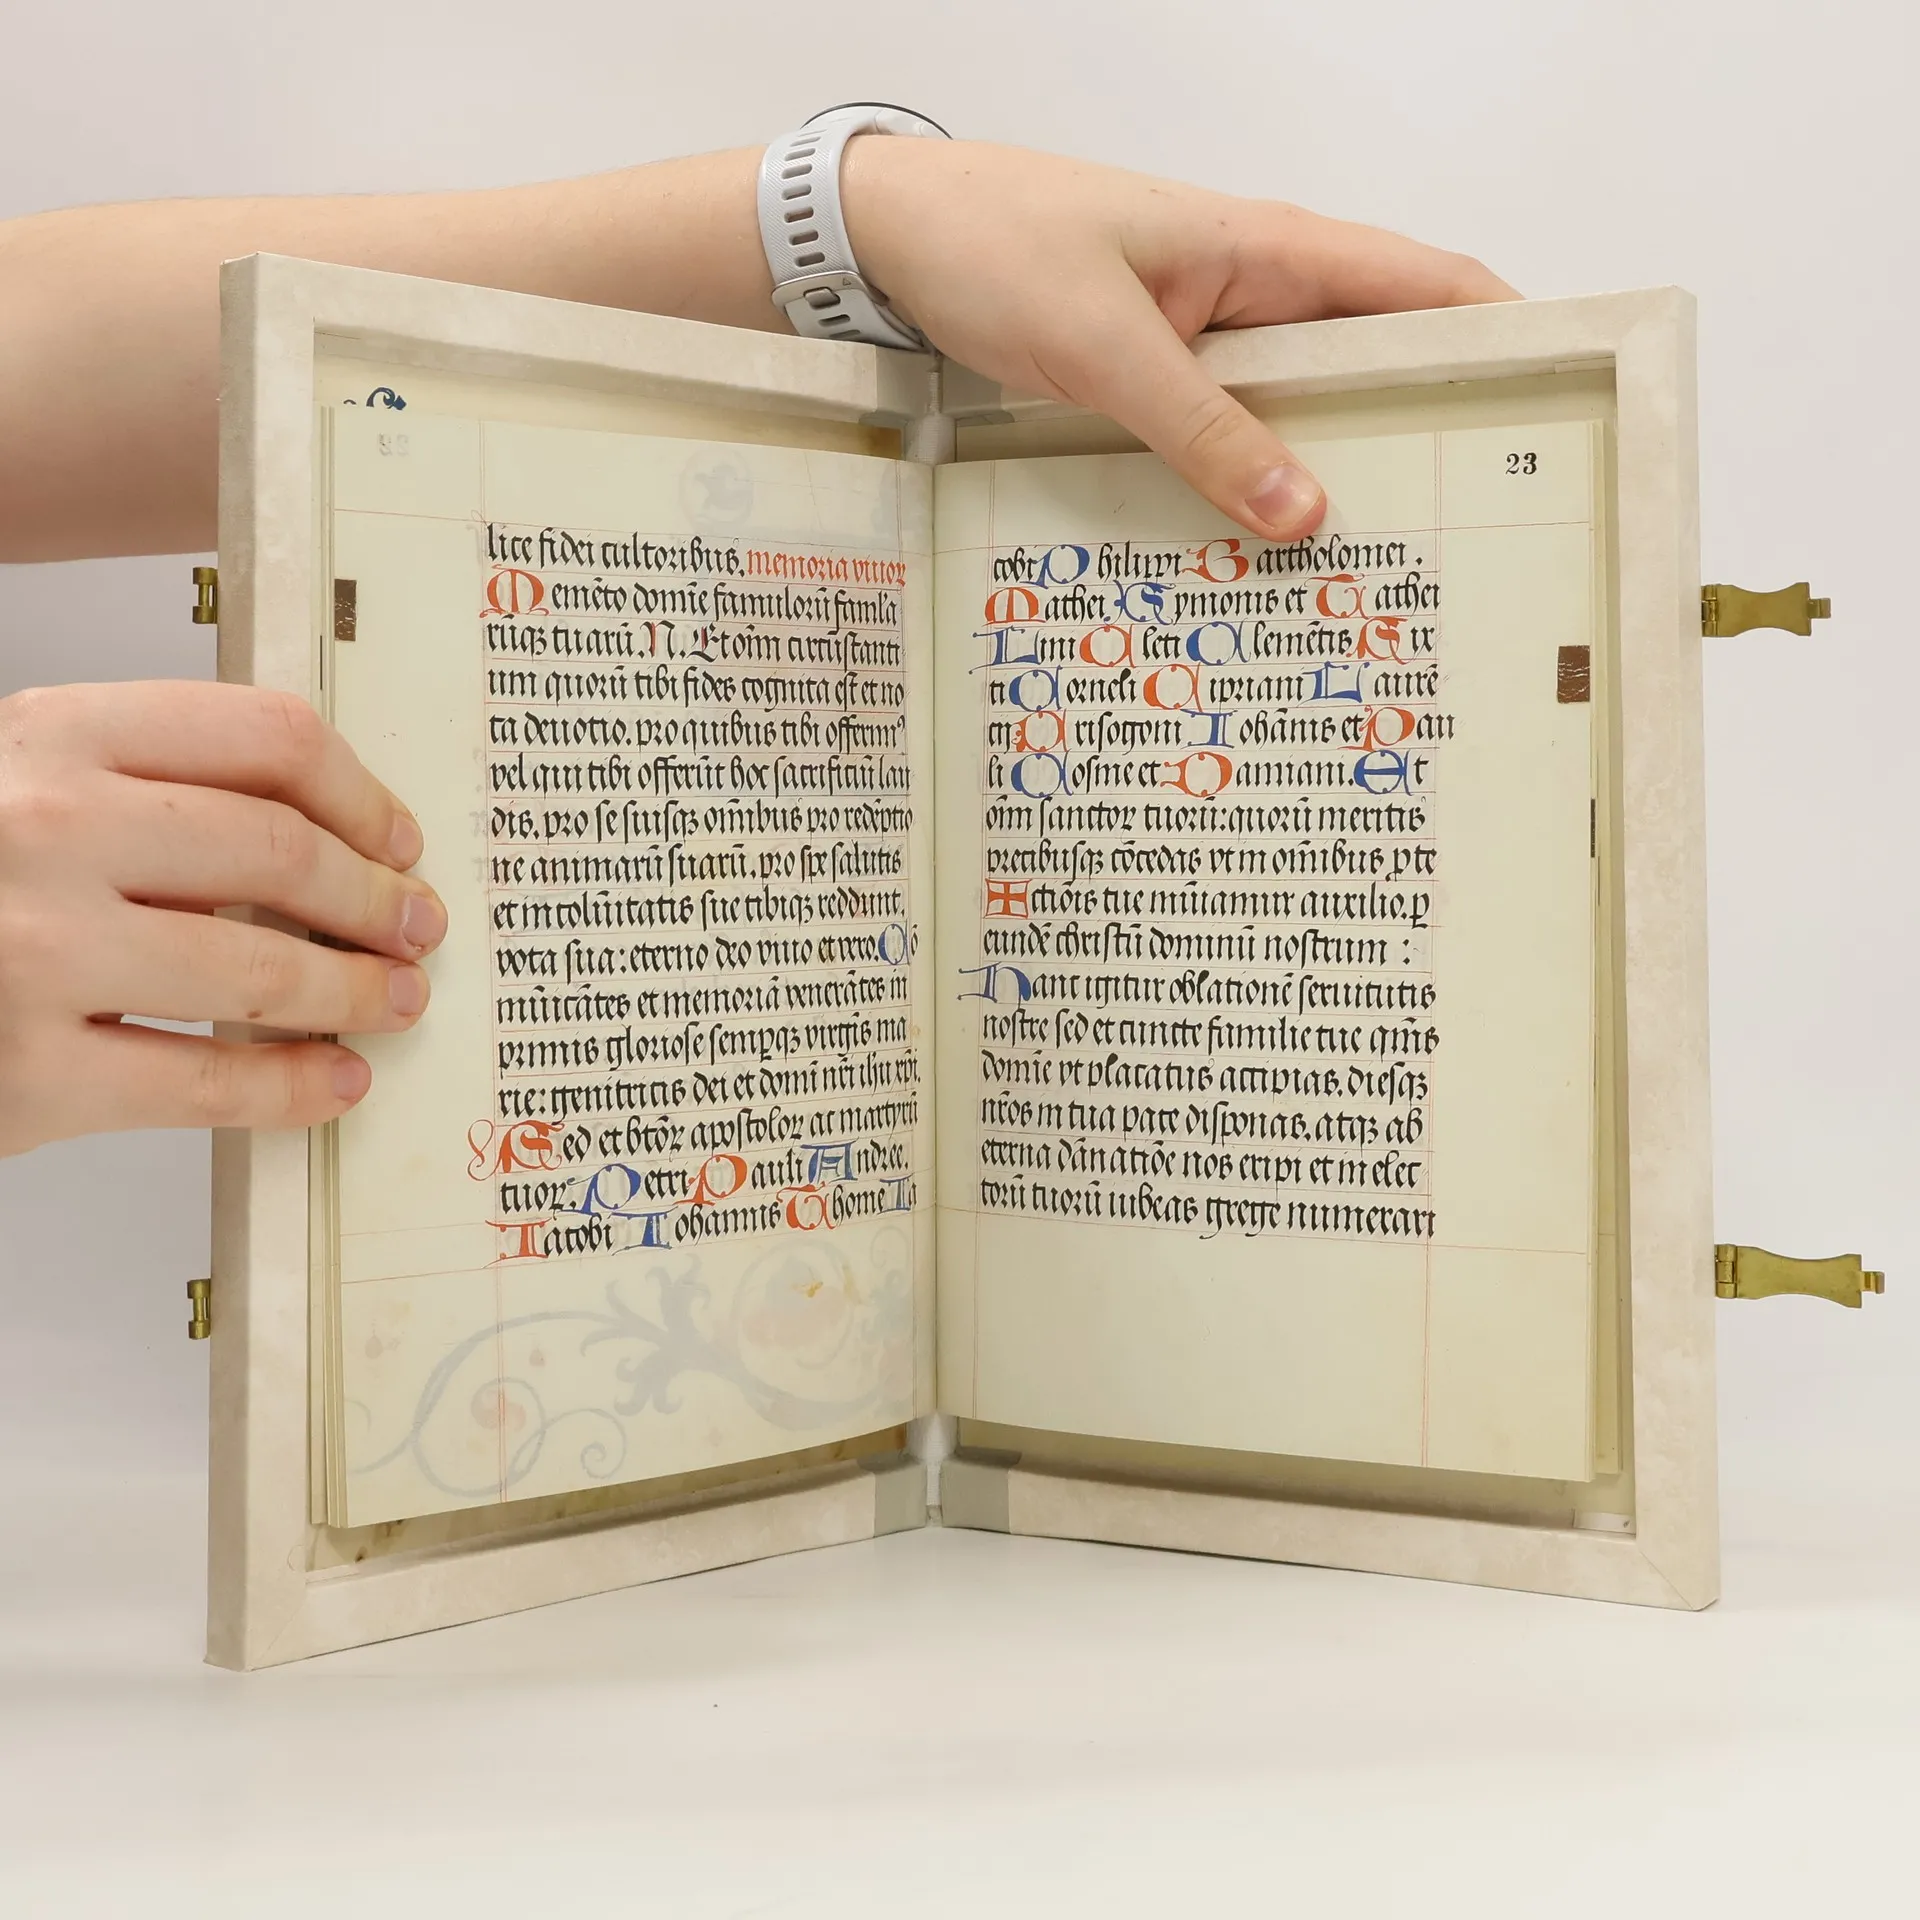 lice fidei cultoribus. memoria viuoꝝ
Memēto domīe famulorū famla
rūqꝫ tuarū. N. Et oīm circūstanti
um quorū tibi fides cognita est et no
ta deuotio. pro quibus tibi offerimꝰ
vel qui tibi offerūt hoc sacrificiū lau
dis. pro se suisqꝫ oīnibus pro redēptio
ne animarū suarū. pro spe salutis
et incolūitatis sue tibiqꝫ reddunt.
vota sua: eterno deo viuo et vero. Cō
mūicātes et memoriā venerātes in
primis gloriose semꝑqꝫ virgīs ma
rie: genitricis dei et domī nr̄i ihu xp̄i.
Sed et btōꝝ apostoloꝝ ac martyrū
tuoꝝ. Petri Pauli Andree.
Iacobi Iohannis Thome Ia
23
cobi Philippi Bartholomei.
Mathei Symonis et Tathei
Lini Cleti Clemētis Six
ti Corneli Cipriani Laurē
cij Crisogoni Iohānis et Pau
li Cosme et Damiani. Et
oīm sanctoꝝ tuorū: quorū meritis
precibusqꝫ cōcedas vt in oīnibus ꝓte
ctiōis tue mūiamur auxilio. ꝑ
eundē christū dominū nostrum :
Hanc igitur oblationē seruitutis
nostre sed et cuncte familie tue qm̄s
domīe vt placatus accipias. diesqꝫ
nr̄os in tua pace disponas. atqꝫ ab
eterna dānatiōe nos eripi et in elec
torū tuorū iubeas grege numerari